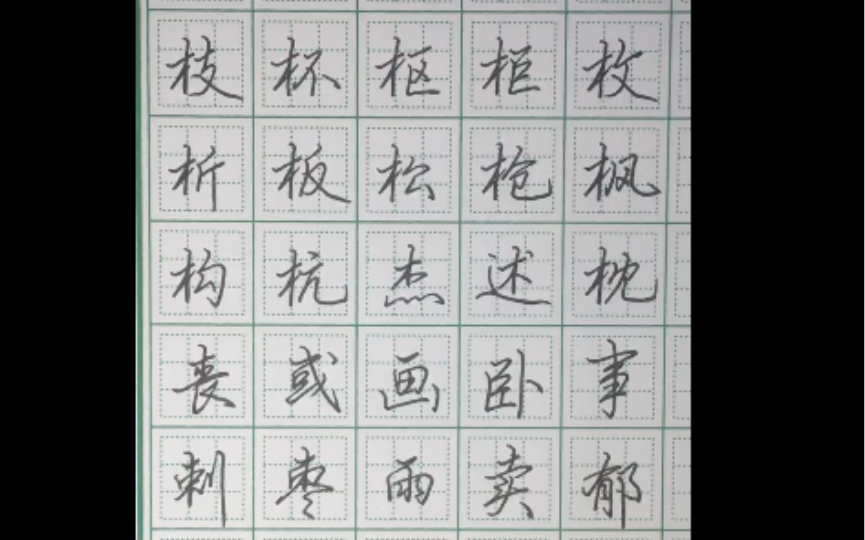 枝杯枢柜枚
析板松枪枫
构杭杰述枕
丧或画卧事
刺枣雨卖郁